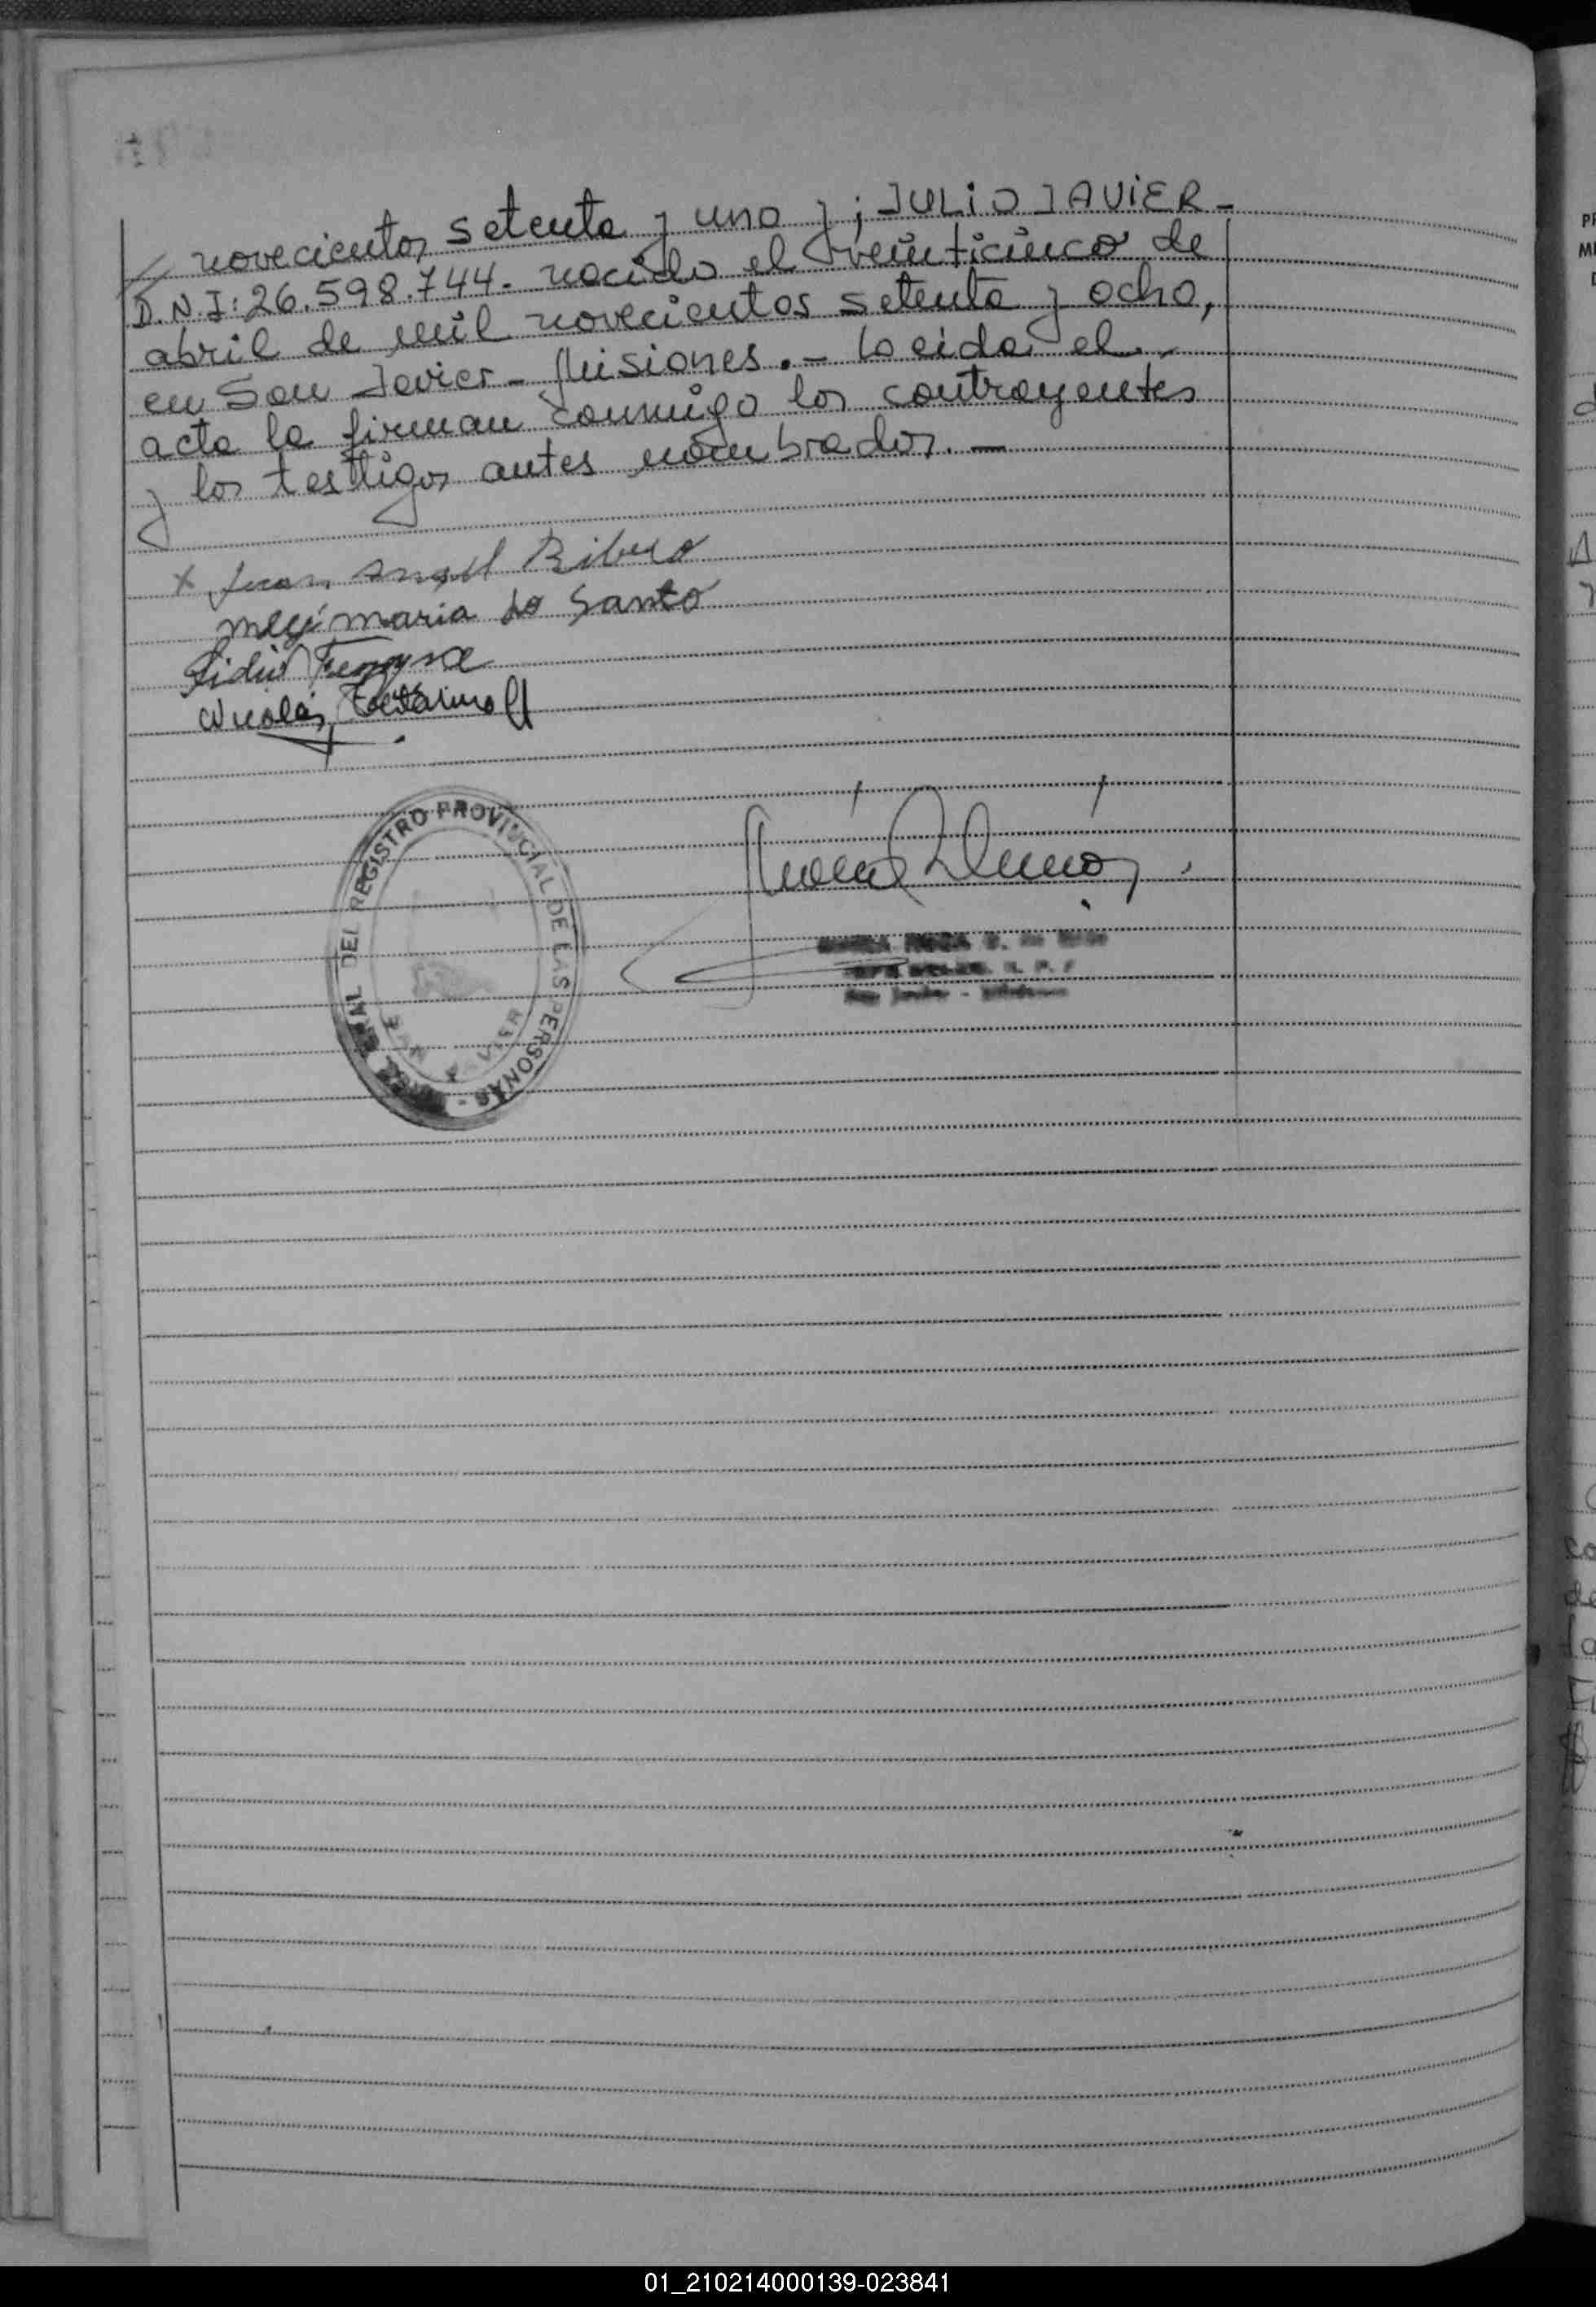 // novecientos setenta y uno y; JULIO JAVIER -
D.N.I: 26.598.744. nacido el veinticinco de
abril de mil novecientos setenta y ocho,
en San Javier - Misiones. - Leida el
acta la firman conmigo los contrayentes
y los testigos antes nombrados. -
x Juan Angel Ribero
maria do Santo
Nicolás
REGISTRO PROVINCIAL DE LAS PERSONAS -
SAN JAVIER
01_210214000139-023841